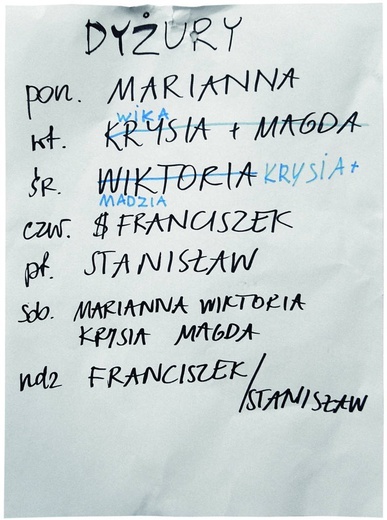 DYŻURY
pon. MARIANNA
WIKA
wt. KRYSIA + MAGDA
śR. WIKTORIA KRYSIA +
MADZIA
czw. $ FRANCISZEK
pt. STANISŁAW
sob. MARIANNA WIKTORIA
KRYSIA MAGDA
ndz FRANCISZEK/
STANISŁAW